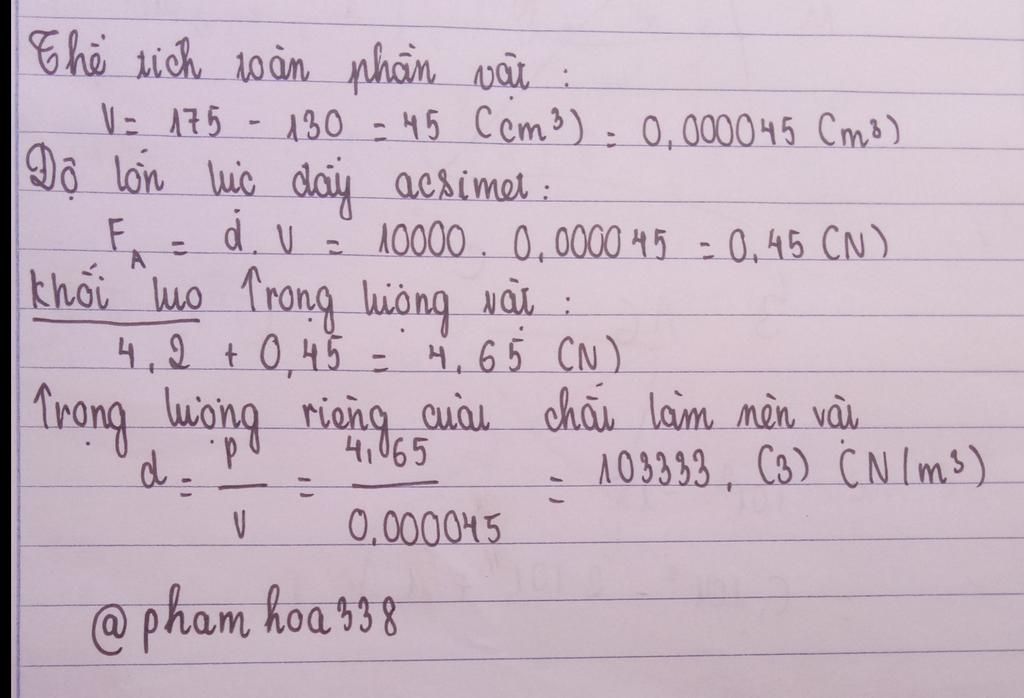 Thể tích toàn phần vật :
V = 175 - 130 = 45 (cm³) = 0,000045 (m³)
Độ lớn lực đẩy acsimet :
F_A = d . V = 10000 . 0,000045 = 0,45 (N)
Khối luo Trọng lượng vật :
4,2 + 0,45 = 4,65 (N)
Trọng lượng riêng của chất làm nên vật
d = P/V = 4,65/0,000045 = 103333,(3) (N/m³)
@phamhoa338